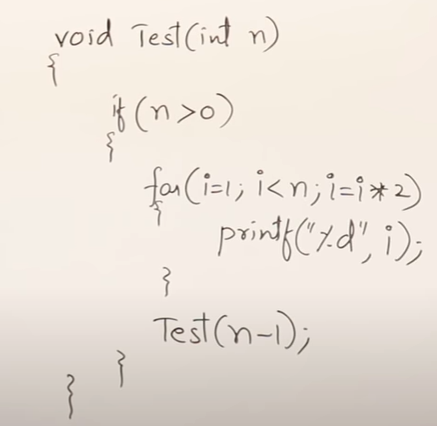 void Test(int n)
{
if(n>0)
{
for(i=1; i<n; i=i*2)
{
printf("%d", i);
}
Test(n-1);
}
}